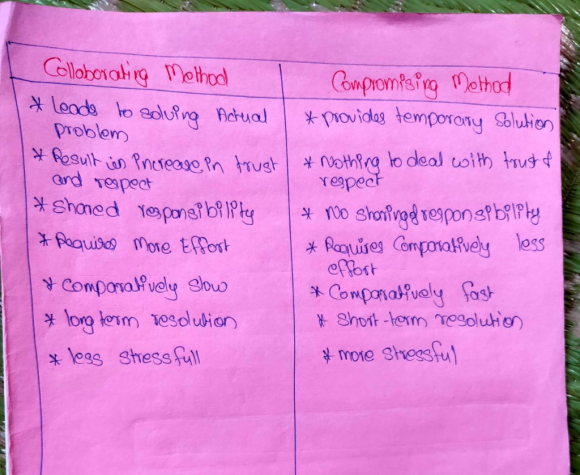 Collaborating Method
* Leads to solving Actual
problem
* Result in Increase in trust
and respect
* Shared responsibility
* Requires More Effort
* Comparatively slow
* long term resolution
* less stressfull
Compromising Method
* provides temporary Solution
* Nothing to deal with trust &
respect
* No sharing of responsibility
* Requires Comparatively less
effort
* Comparatively fast
* Short-term resolution
* more stressful